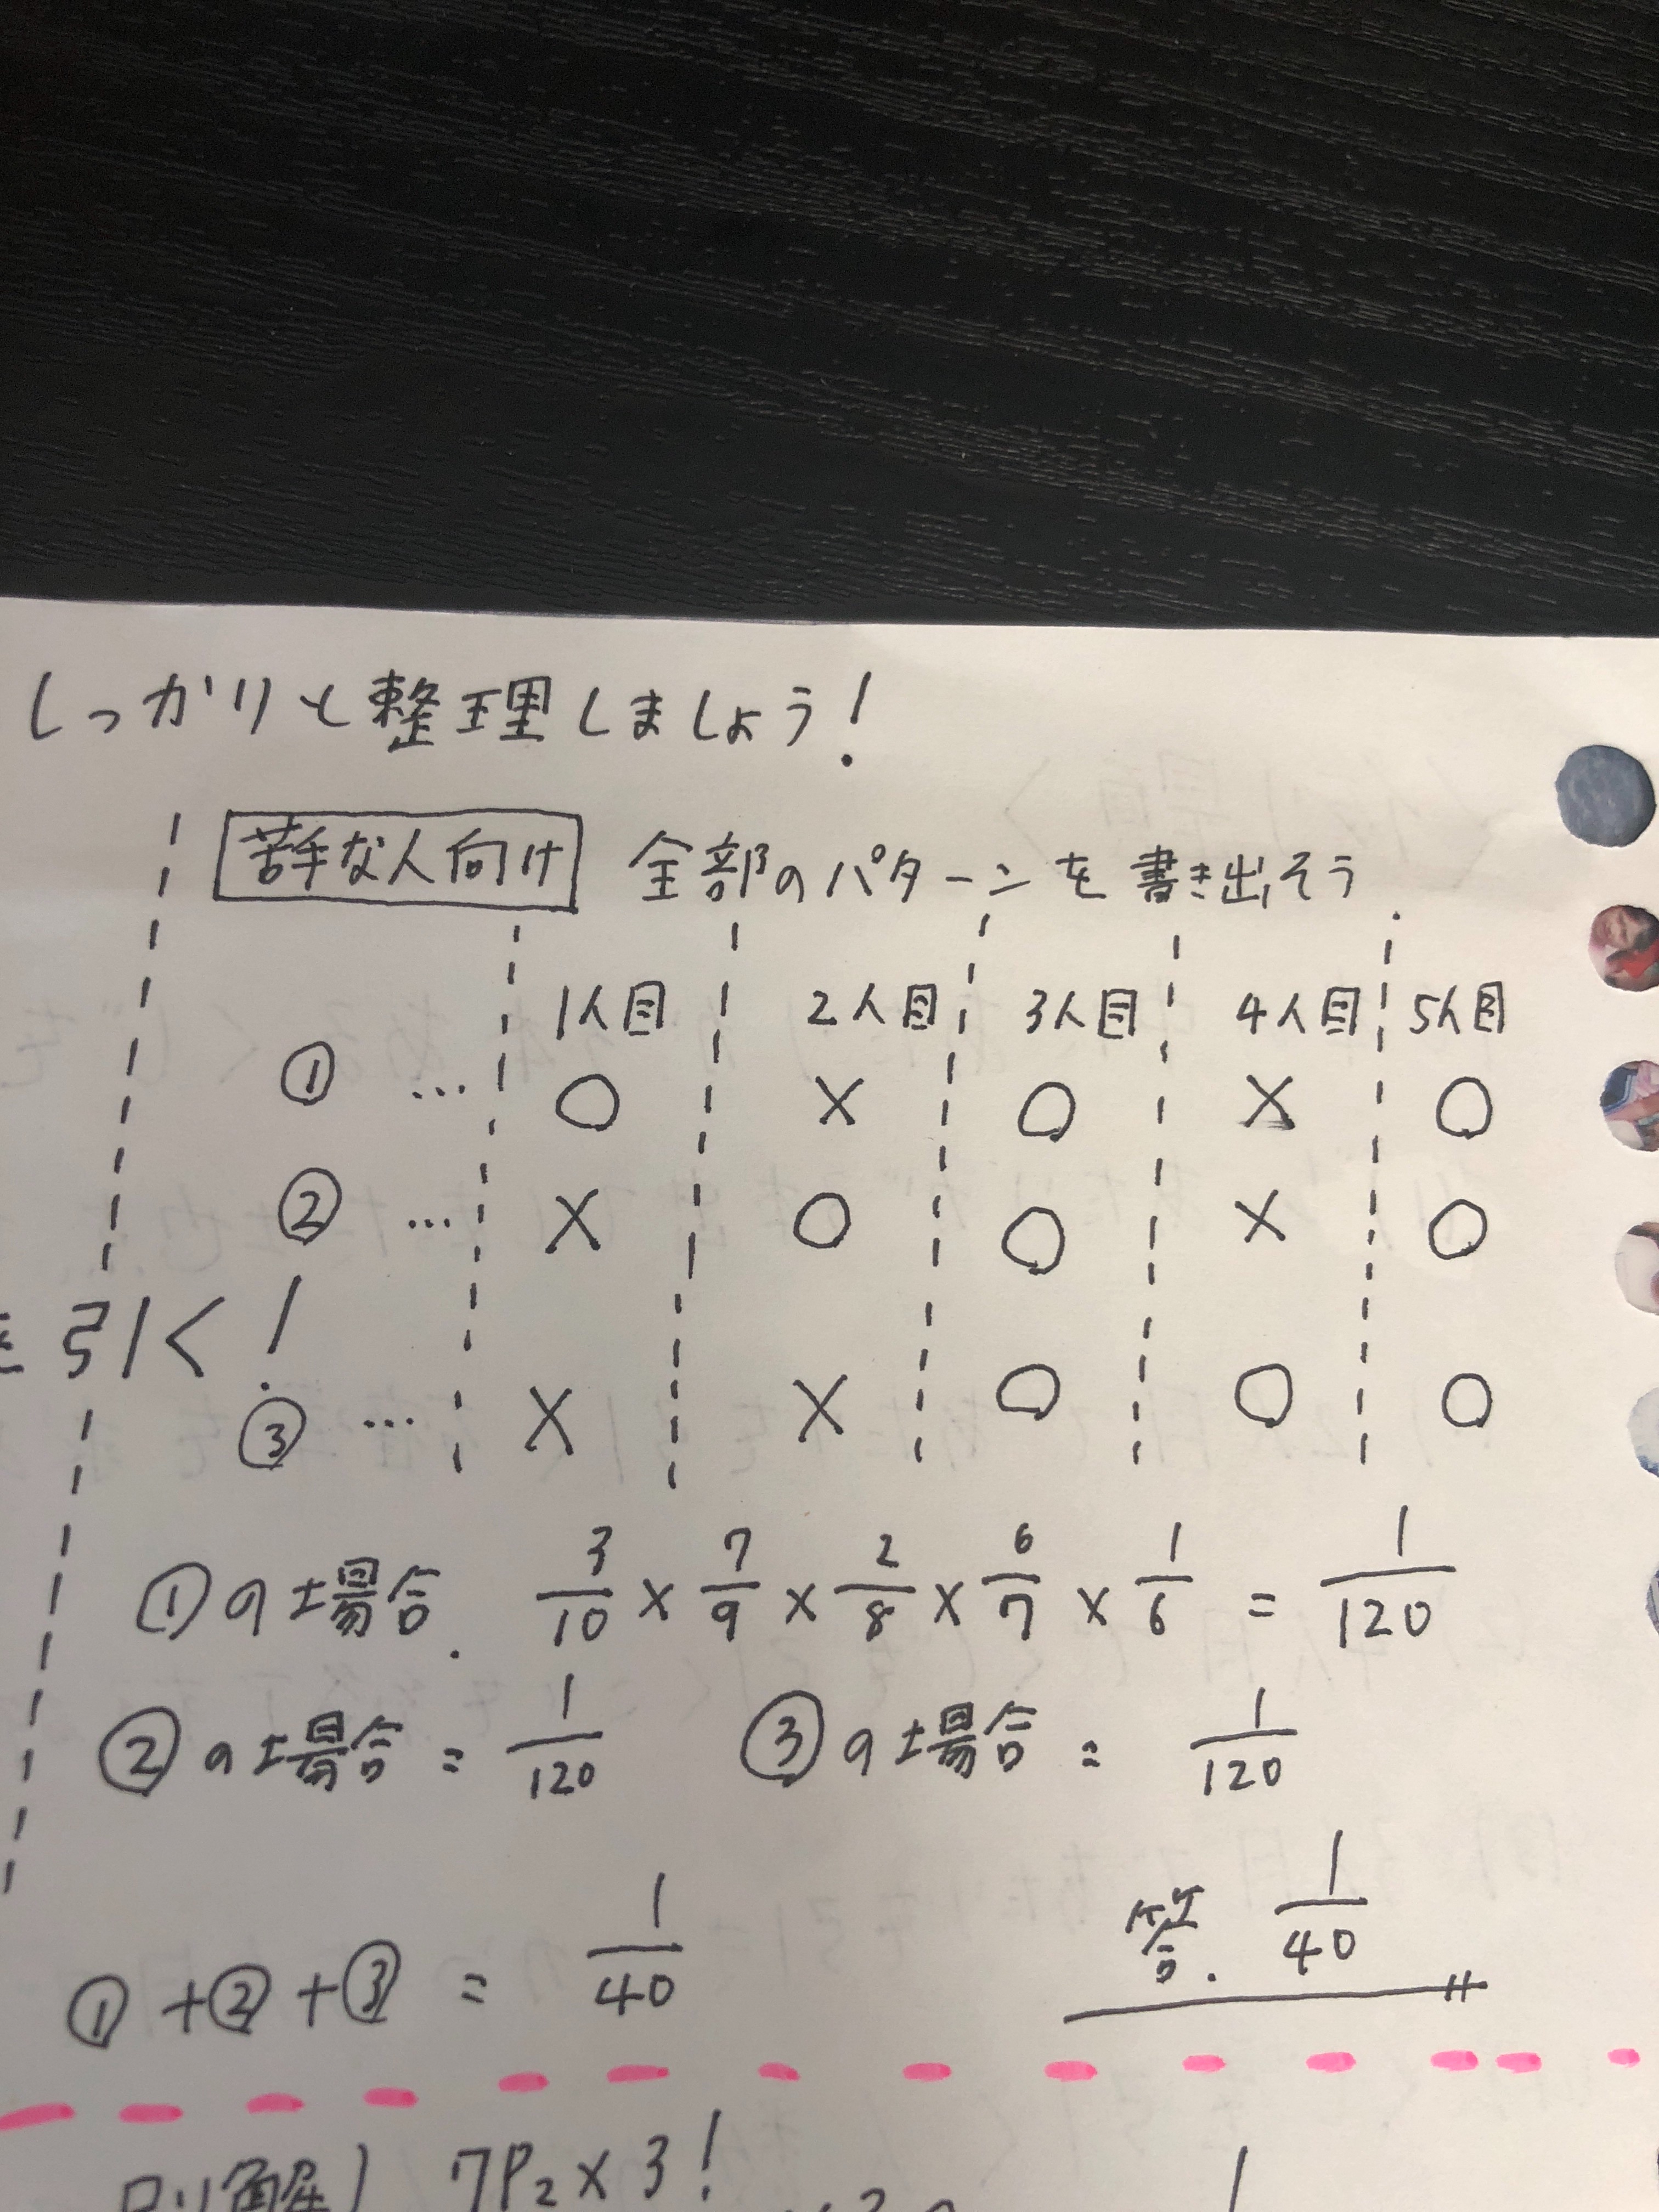 しっかりと整理しましょう!
苦手な人向け 全部のパターンを書き出そう.
1人目 2人目 3人目 4人目 5人目
① … ○ × ○ × ○
② … × ○ ○ × ○
を引く!
③ … × × ○ ○ ○
①の場合. 3/10 × 7/9 × 2/8 × 6/7 × 1/6 = 1/120
②の場合 = 1/120 ③の場合 = 1/120
①+②+③ = 1/40 答. 1/40
別解) 7P2×3!